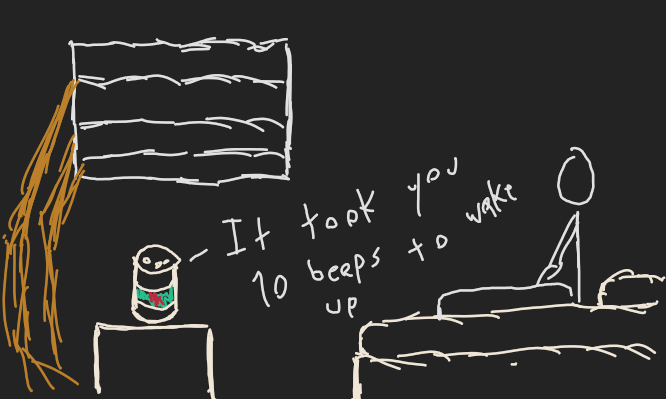 It took you
10 beeps to wake
up